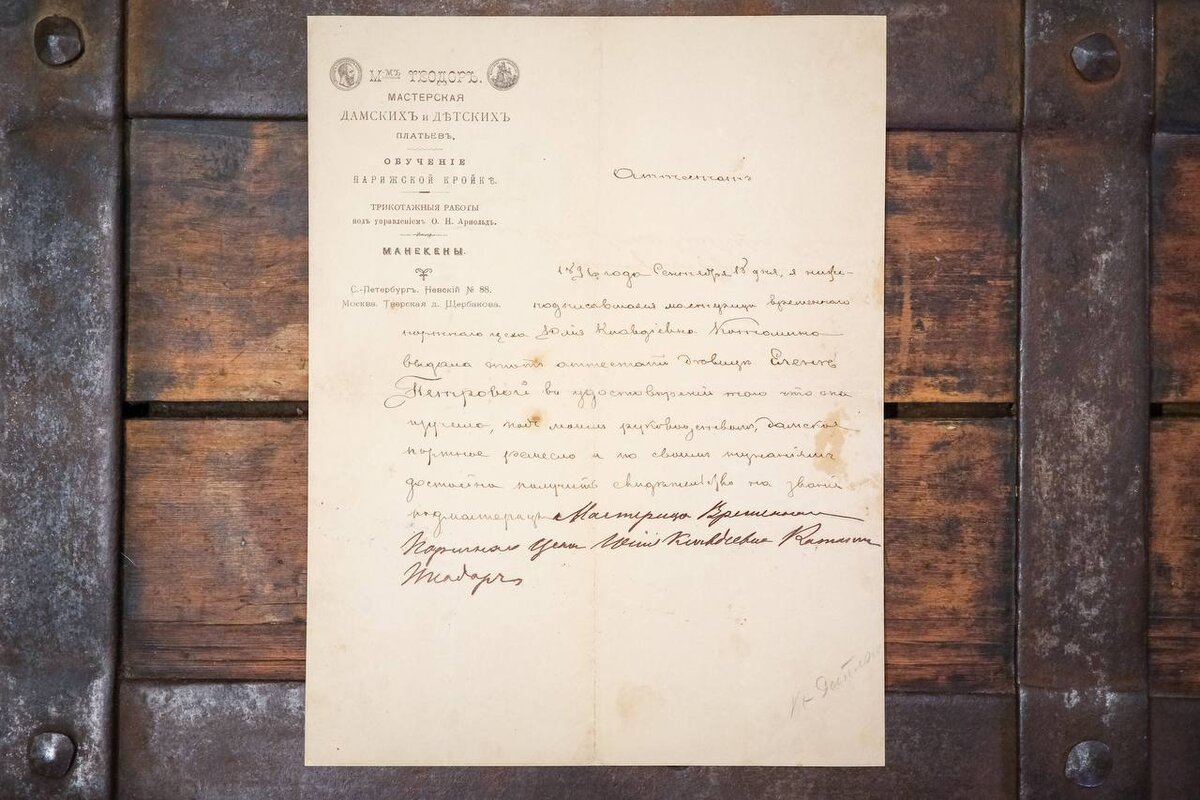 Мᵐᵐъ ТЕОДОРЪ.
МАСТЕРСКАЯ
ДАМСКИХЪ и ДѢТСКИХЪ
ПЛАТЬЕВЪ.
ОБУЧЕНІЕ
ПАРИЖСКОЙ КРОЙКѢ.
ТРИКОТАЖНЫЯ РАБОТЫ
подъ управленіемъ О. Н. Арнольдъ.
МАНЕКЕНЫ.
С.-Петербургъ. Невскій № 88.
Москва. Тверская д. Щербакова.
Аттестатъ
года Сентября дня, я ниже-
подписавшаяся мастерица временнаго
портнаго цеха Юлія Клавдіевна
выдала этотъ аттестатъ дѣвицѣ Еленѣ
Петровой въ удостовѣреніи того что она
изучила, подъ моимъ руководствомъ, дамское
портное ремесло и по своимъ познаніямъ
достойна получить свидѣтельство на званіе
подмастерицы Мастерица Временнаго
Портнаго Цеха Юлія Клавдіевна
Теодоръ